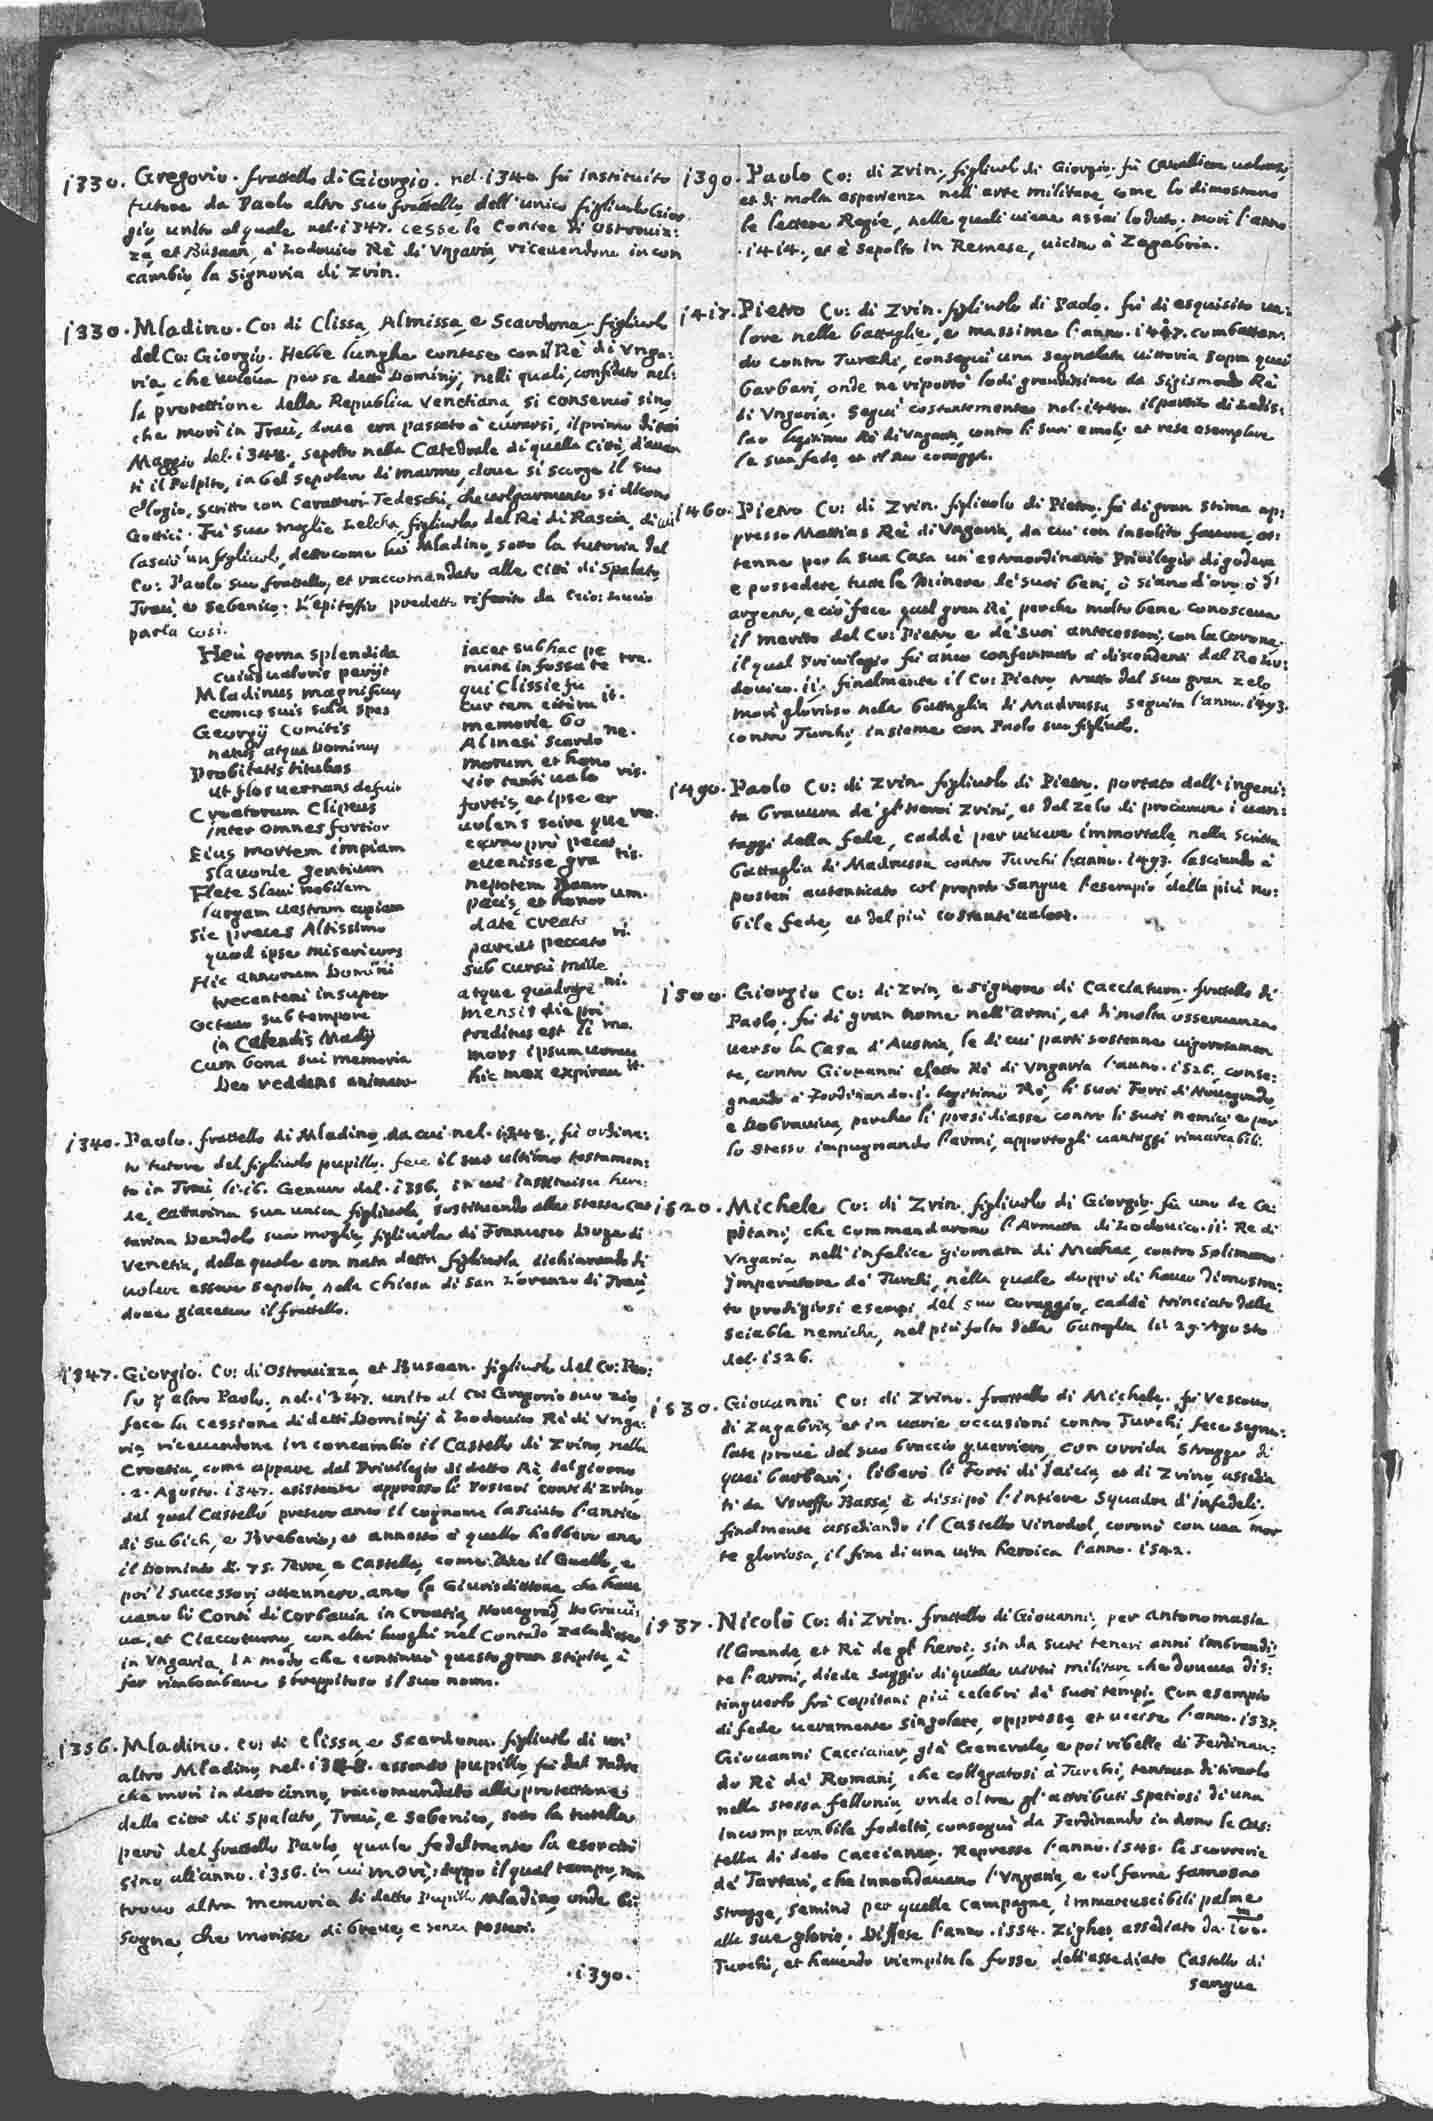 1330. Gregorio. fratello di Giorgio. nel. 1340. fù instituito
tutore da Paolo altro suo fratello, dell'unico figliuolo Gior
gio, unito al quale nel. 1347. cesse le Contee di Ostrouiz:
za, et Busaan, à Lodouico Rè di Vngaria, riceuendone in con
cambio, la Signoria di Zrin.
1330. Mladino. Co: di Clissa, Almissa, e Scardona. figliuolo
del Co: Giorgio. Hebbe lunghe contese con il Rè di Vnga:
ria, che voleua per se detti Dominij, nelli quali, confidato nel:
la protettione della Republica Venetiana, si conseruò sino
che morì in Traù, doue era passato à curarsi, il primo di
Maggio del. 1348. sepolto nella Catedrale di quella Città, d'auan
ti il Pulpito, in bel sepolcro di marmo, doue si scorge il suo
elogio, scritto con Caratteri Tedeschi, che uolgarmente si dicono
Gottici. Fù sua moglie Lelcha, figliuola del Rè di Rascia, di cui
lasciò un figliuolo, detto come lui Mladino, sotto la tutoria del
Co: Paolo suo fratello, et raccomandato alle Città di Spalato,
Traù, et Sebenico. L'epitaffio predetto riferito da Gio: Lucio
parla così.
Heù gema splendida iacet sub hac pe
cuius ualoris perijt nunc in fossa te tra.
Mladinus magnificus qui Clissie fu
comes suis sola spes Cur tam citius it.
Georgij Comitis memorie bo
natus atque Dominus Almesi Scardo ne.
Probitatis titulus morum et hono
ut flos uernans defuit vir tanti ualo ris.
Croatorum Clipeus fortis, et ipse er
inter omnes fortior uolens scire que re.
Eius mortem impiam
Slauonie gentium euenisse gra tis.
Flete Slaui nobilem nepotem
largam uestram copiam pacis, et honor um.
Sic preces Altissimo date Creato
quod ipse misericors parcat peccato ri.
Hic annorum Domini sub cursu mille
trecenteni insuper atque quadrage ni.
Octauo sub tempore mensis die pri
in Calendis Madij traditus est li mo.
Cum bona sui memoria mors ipsum uorau
Deo reddens animam hic mox expirau it.
1340. Paolo. fratello di Mladino, da cui nel. 1348. fù ordina:
to tutore del figliuolo pupillo. fece il suo ultimo testamen:
to in Traù, li. 16. Genaro del. 1356, in cui instituisce here:
de, Catarina sua unica figliuola, sostituendo alla stessa Cat
tarina Dandolo sua moglie, figliuola di Francesco Doge di
Venetia, della quale era nata detta figliuola, dichiarando di
uoler essere sepolto, nella Chiesa di San Lorenzo di Traù,
doue giaceua il fratello.
1347. Giorgio. Co: di Ostrouizza, et Busaan. figliuolo del Co: Pao:
lo q altro Paolo. nel. 1347. unito al Co: Gregorio suo zio,
fece la cessione di detti Dominij à Lodouico Rè di Vnga:
ria, riceuendone in concambio il Castello di Zrino, nella
Croatia, come appare dal Priuilegio di detto Rè, del giorno
. 2. Agosto. 1347. esistente appresso li Posteri conti di Zrino,
dal qual Castello presero anco il cognome, lasciato l'antico
di Subich, e Breberio, et annesso à quello hebbero anco
il Dominio di. 75. Terre, e Castelli, come dice il Gualdo, e
poi i successori ottennero anco la Giurisdittione, che haue
uano li Conti di Corbauia in Croatia, Nouegrad, Dobraui:
ua, et Ciaccoturno, con altri luoghi nel Contado Zaladiese
in Vngaria, In modo che continuò questo gran stipite, à
far rimbombare strepitoso il suo nome.
1356. Mladino. Co: di Clissa, e Scardona. figliuolo di un'
altro Mladino, nel. 1348. essendo pupillo, fù dal Padre
che morì in detto anno, raccomandato alla protettione
delle città di Spalato, Traù, e Sebenico, sotto la tutella
però del fratello Paolo, quale fedelmente la esercitò
sino all'anno. 1356. in cui morì, doppo il qual tempo, non
trouo altra memoria di detto Pupillo Mladino, onde bi:
sogna, che morisse di breue, e senza posteri.
. 1390.
1390. Paolo Co: di Zrin, figliuolo di Giorgio. fù Caualliere ualoroso,
et di molta esperienza nell'arte militare, come lo dimostrano
le lettere Regie, nelle quali uiene assai lodato. morì l'anno
. 1414. et è sepolto in Remese, uicino à Zagabria.
1417. Pietro Co: di Zrin. figliuolo di Paolo. fù di esquisito ua:
lore nelle battaglie, e massime l'anno. 1447. combatten:
do contro Turchi, conseguì una segnalata uittoria sopra quei
barbari, onde ne riportò lodi grandissime da Sigismondo Rè
di Vngaria. Seguì costantemente nel. 1440. il partito di Ladis:
lao legitimo Rè di Vngaria, contro li suoi emoli, et rese esemplare
la sua fede, et il suo coraggio.
1460. Pietro Co: di Zrin. figliuolo di Pietro. fù di gran stima ap:
presso Mattias Rè di Vngaria, da cui con insolito fauore, ot:
tenne per la sua Casa un'estraordinario Priuilegio di godere
e possedere tutte le minere de' suoi beni, ò siano d'oro, ò d'
argento, e ciò fece quel gran Rè, perche molto bene conosceua
il merito del Co: Pietro, e de' suoi antecessori, con la Corona.
il qual Priuilegio fù anco confermato à discendenti dal Rè Lo:
douico. ij. finalmente il Co: Pietro, tratto dal suo gran zelo
morì glorioso nella battaglia di Madrussa seguita l'anno. 1493.
contro Turchi, insieme con Paolo suo figliuolo.
1490. Paolo Co: di Zrin figliuolo di Pietro. portato dall'ingeni:
ta brauura de' gl'Heroi Zrini, et dal zelo di procurare i uan:
taggi della fede, cadde per uiuere immortale, nella
battaglia di Madrussa contro Turchi l'anno. 1493. lasciando à
posteri autenticato col proprio Sangue l'esempio della più no:
bile fede, et del più costante ualore.
1500. Giorgio Co: di Zrin, e Signore di Cacciaturn. fratello di
Paolo. fù di gran nome nell'armi, et di molta osseruanza
uerso la Casa d'Austria, le di cui parti sostenne uigorosamen
te, contro Giouanni eletto Rè di Vngaria l'anno. 1526. conse:
gnando à Ferdinando. j. legitimo Rè, li suoi Forti di Nouegrado,
e Dobrauiua, perche li presidiasse contro li suoi nemici, e per
lo stesso impugnando l'armi, apportogli uantaggi rimarcabili.
1520. Michele Co: di Zrin. figliuolo di Giorgio. fù uno de Ca:
pitani, che commandarono l'Armata di Lodouico. ij. Rè di
Vngaria, nell'infelice giornata di Mohac, contro Solimano
Imperatore de' Turchi, nella quale doppò di hauer dimostra:
to prodigiosi esempi del suo coraggio, cadde trinciato dalle
sciable nemiche, nel più folto della battaglia li 29. Agosto
del. 1526.
1530. Giouanni Co: di Zrino. fratello di Michele. fù Vescouo
di Zagabria, et in uarie occasioni contro Turchi, fece segna:
late proue del suo braccio guerriero, con orrida strage di
quei barbari; liberò li Forti di Jaicia, et di Zrino, assedia
ti da Vsreffo Bassà, e dissipò l'intiere Squadre d'infedeli.
finalmente assediando il Castello Vinodol, coronò con una mor
te gloriosa, il fine di una uita heroica l'anno. 1542.
1537. Nicolò Co: di Zrin. fratello di Giouanni, per antonomasia
il Grande, et Rè de gl'heroi, sin da suoi teneri anni imbrandi:
te l'armi, diede saggio di quella uirtù militare, che doueua dis:
tinguerlo frà Capitani più celebri de' suoi tempi. Con esempio
di fede ueramente singolare, oppresse, et uccise l'anno. 1537.
Giouanni Caccianer, già Generale, e poi ribelle di Ferdinan:
do Rè de' Romani, che collegatosi à Turchi, tentaua di tirarlo
nella stessa fellonia, onde oltre gl'attributi spetiosi di una
incomparabile fedeltà, conseguì da Ferdinando in dono le Cas:
tella di detto Caccianer. Represse l'anno. 1545. le scorrerie
de' Tartari, che innondauano l'Vngaria, e col farne famosa
strage, seminò per quelle campagne, immarcescibili palme
alle sue glorie. Diffese l'anno. 1554. Zighet, assediato da. 100.
Turchi, et hauendo riempite le fosse dell'assediato Castello di
sangue